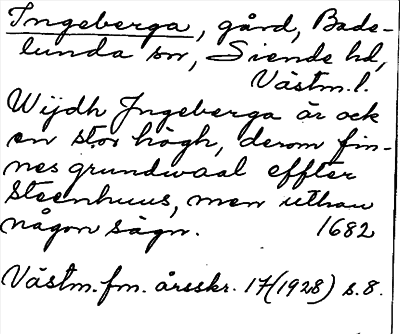 Ingeberga, gård, Bade-
lunda sn, Siende hd,
Västm.l.
Wijdh Ingeberga är ock
en stor högh, derom fin-
nes grundwaal effter
Steenhuus, men uthan
någon sägn. 1682
Västm.fm. årsskr. 17(1928) s.8.